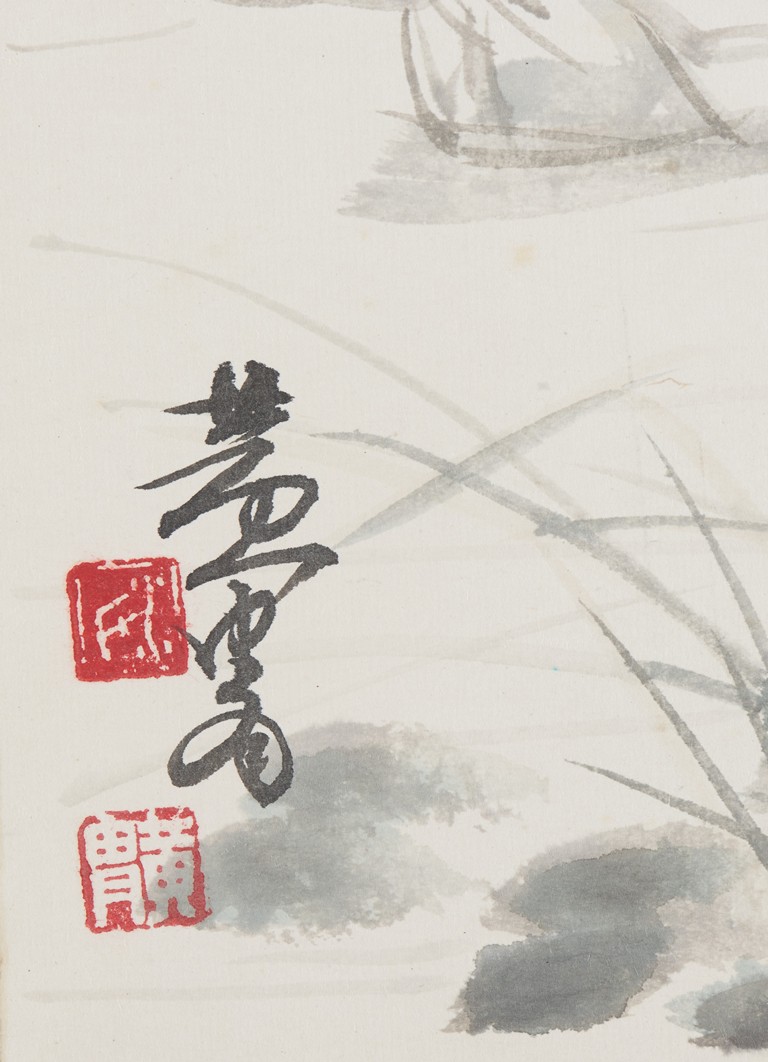 黄胄
黄胄